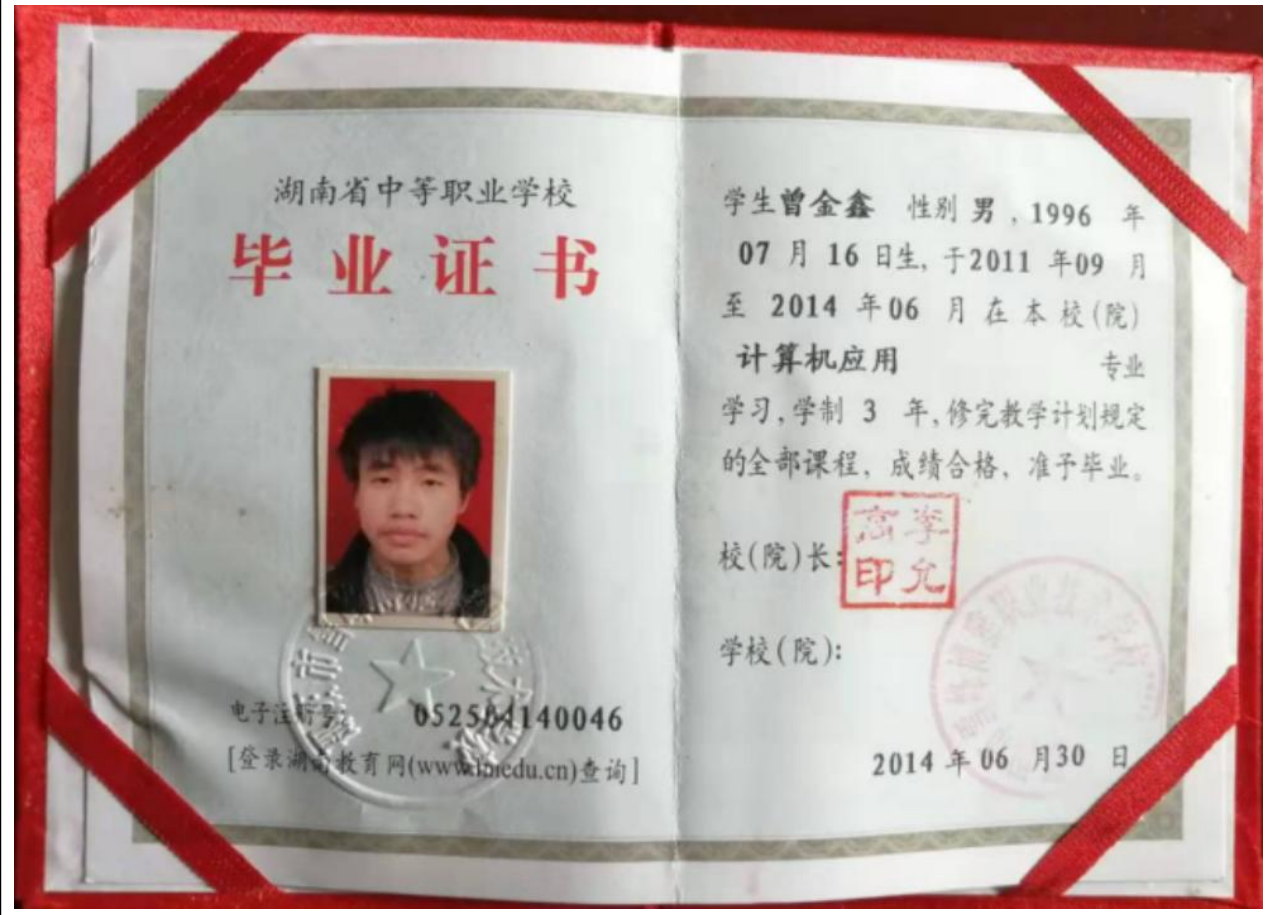 湖南省中等职业学校
毕业证书
电子注册号: 052564140046
[登录湖南教育网(www.hnedu.cn)查询]
学生曾金鑫 性别 男 , 1996 年
07 月 16 日生, 于2011 年09 月
至 2014 年06 月 在 本 校(院)
计算机应用 专业
学习, 学制 3 年, 修完教学计划规定
的全部课程, 成绩合格, 准予毕业。
校(院)长:
李允
高印
学校(院):
2014 年 06 月30 日